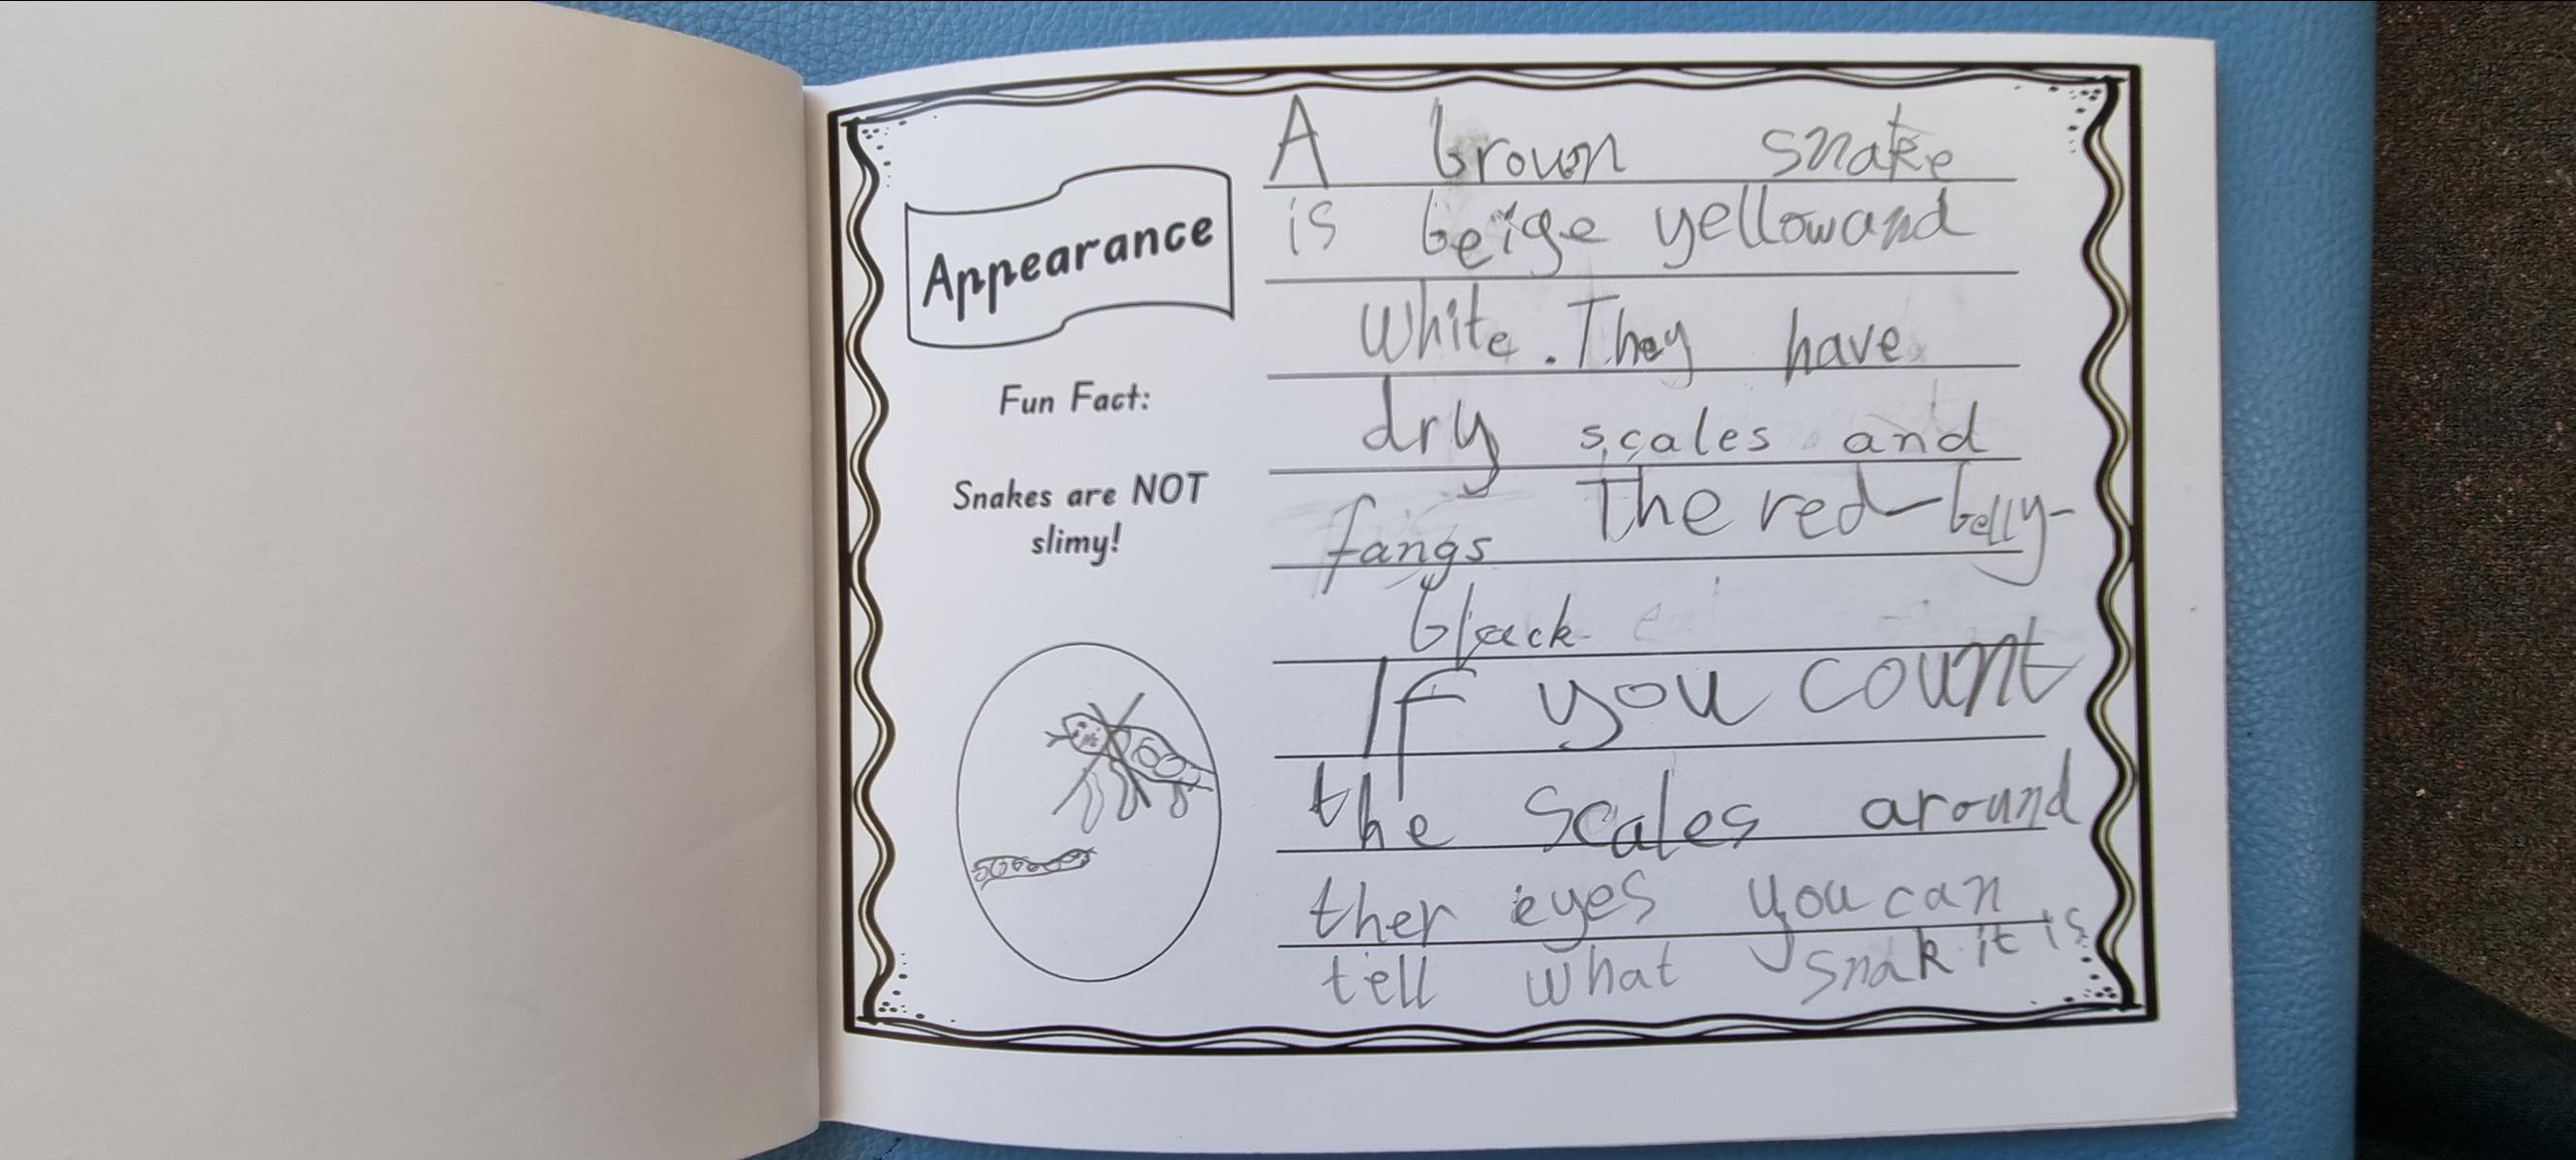 Appearance
Fun Fact:
Snakes are NOT
slimy!
A brown snake
is beige yellow and
white. They have
dry scales and
fangs The red-belly-
black
If you count
the scales around
ther eyes you can
tell what snak it is